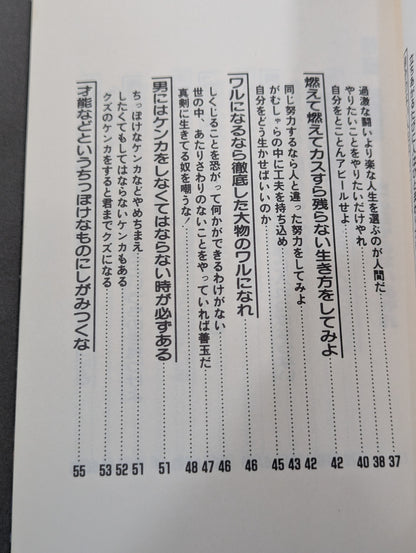 過激な闘いより楽な人生を選ぶのが人間だ……37
やりたいことをやりたいだけやれ……38
自分をとことんアピールせよ……40
燃えて燃えてカスすら残らない生き方をしてみよ……42
同じ努力するなら人と違った努力をしてみよ……42
がむしゃらの中に工夫を持ち込め……43
自分をどう生かせばいいのか……45
ワルになるなら徹底した大物のワルになれ……46
しくじることを恐がって何かができるわけがない……46
世の中、あたりさわりのないことをやっていれば善玉だ……47
真剣に生きてる奴を嘲うな!……48
男にはケンカをしなくてはならない時が必ずある……51
ちっぽけなケンカなどやめちまえ……51
したくてもしてはならないケンカもある……52
クズのケンカをすると君までクズになる……53
才能などというちっぽけなものにしがみつくな……55